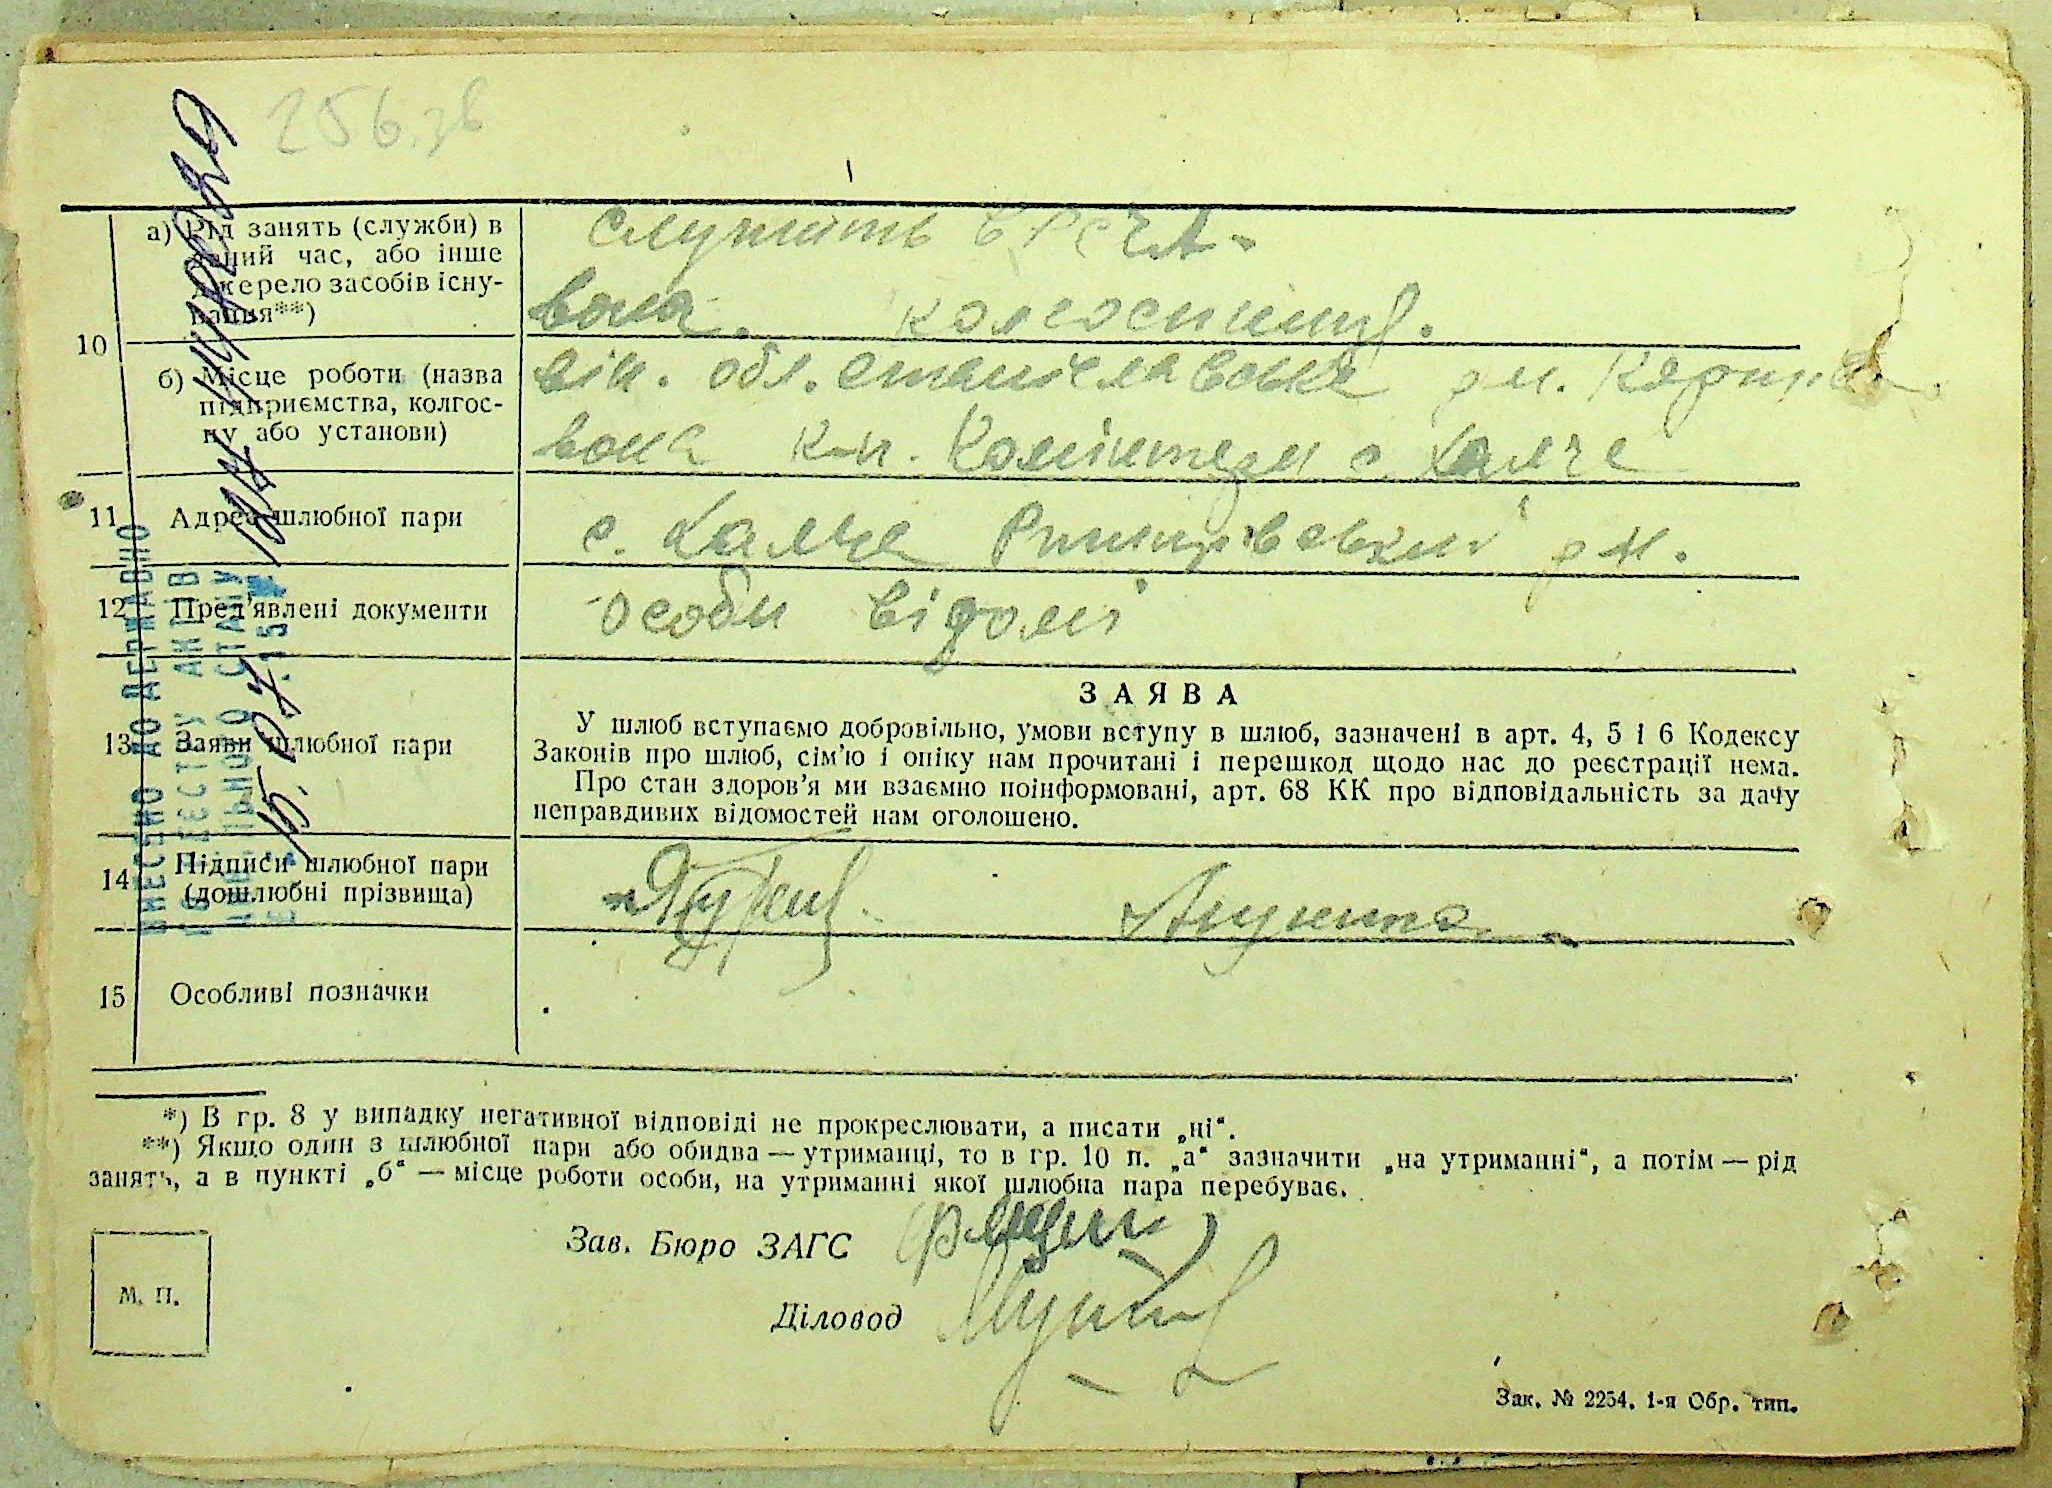 256 зв
а) Рід занять (служби) в
даний час, або інше
джерело засобів існу-
вання**)
служить в РСЧА
вона колгоспниця.
10
б) Місце роботи (назва
підприємства, колгос-
пу або установи)
він. обл. Станіславська
вона к-п. Комінтерн с. Халче
11 Адреса шлюбної пари
с. Халче Ржищівський р-н.
12 Пред'явлені документи
особи відомі
13 Заяви шлюбної пари
ЗАЯВА
У шлюб вступаємо добровільно, умови вступу в шлюб, зазначені в арт. 4, 5 і 6 Кодексу
Законів про шлюб, сім'ю і опіку нам прочитані і перешкод щодо нас до реєстрації нема.
Про стан здоров'я ми взаємно поінформовані, арт. 68 КК про відповідальність за дачу
неправдивих відомостей нам оголошено.
14 Підписи шлюбної пари
(дошлюбні прізвища)
15 Особливі позначки
*) В гр. 8 у випадку негативної відповіді не прокреслювати, а писати „ні“.
**) Якщо один з шлюбної пари або обидва — утриманці, то в гр. 10 п. „а“ зазначити „на утриманні“, а потім — рід
занять, а в пункті „б“ — місце роботи особи, на утриманні якої шлюбна пара перебуває.
Зав. Бюро ЗАГС
Діловод
М. П.
Зак. № 2254. 1-я Обр. тип.
ВНЕСЕНО ДО ДЕРЖАВНО
РЕЄСТРУ АКТІВ
ЦИВІЛЬНОГО СТАНУ
15.07